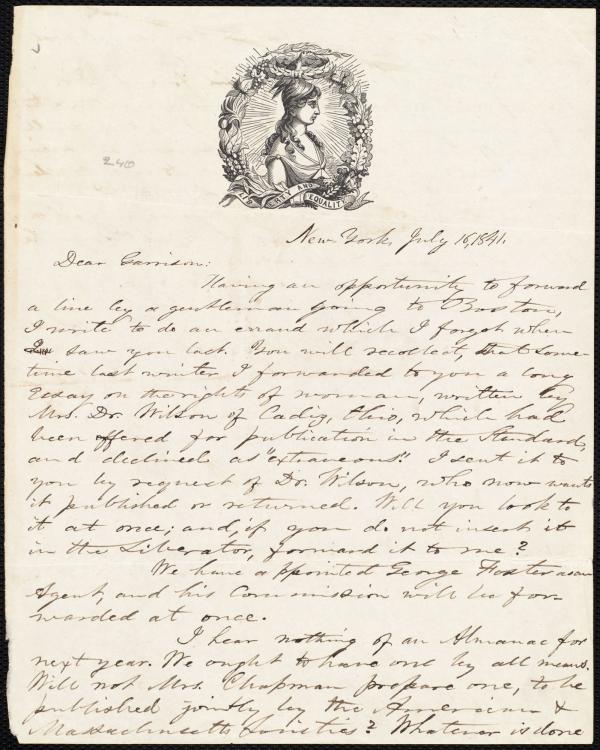 240
LIBERTY AND EQUALITY
New York, July 16, 1841.
Dear Garrison:
Having an opportunity to forward
a line by a gentleman going to Boston,
I write to do an errand which I forgot when
I saw you last. You will recollect, that some-
time last winter I forwarded to you a long
Essay on the rights of woman, written by
Mrs. Dr. Wilson of Cadiz, Ohio, which had
been offered for publication in the Standard,
and declined as "extraneous". I sent it to
you by request of Dr. Wilson, who now wants
it published or returned. Will you look to
it at once; and, if you do not insert it
in the Liberator, forward it to me?
We have appointed George Foster as an
Agent, and his Commission will be for-
warded at once.
I hear nothing of an Almanac for
next year. We ought to have one by all means.
Will not Mrs. Chapman prepare one, to be
published jointly by the American &
Massachusetts Societies? Whatever is done